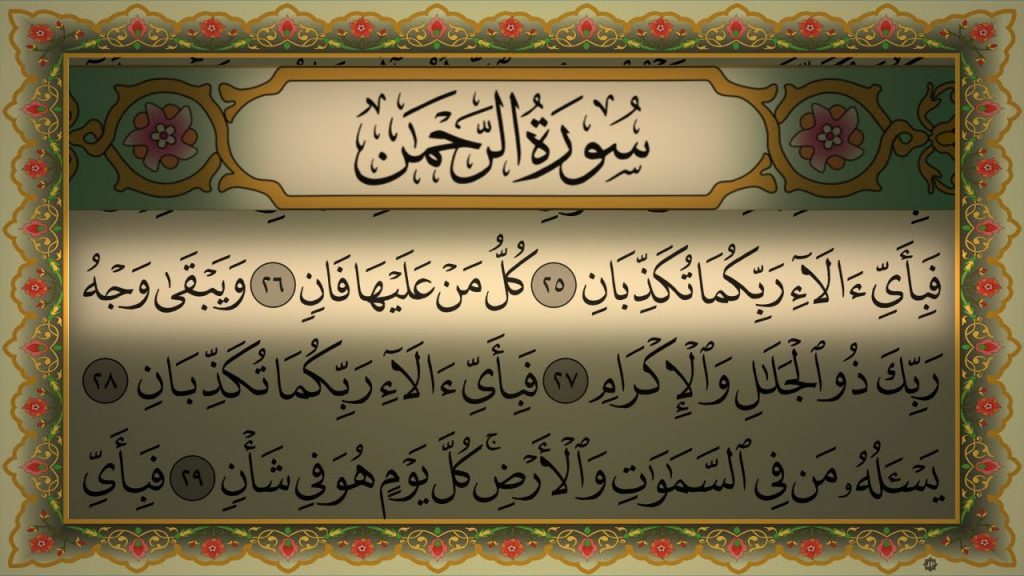 سُورَةُ الرَّحْمَٰن
فَبِأَيِّ ءَالَآءِ رَبِّكُمَا تُكَذِّبَانِ ٢٥ كُلُّ مَنْ عَلَيْهَا فَانٍ ٢٦ وَيَبْقَىٰ وَجْهُ
رَبِّكَ ذُو ٱلْجَلَٰلِ وَٱلْإِكْرَامِ ٢٧ فَبِأَيِّ ءَالَآءِ رَبِّكُمَا تُكَذِّبَانِ ٢٨
يَسْـَٔلُهُۥ مَن فِى ٱلسَّمَٰوَٰتِ وَٱلْأَرْضِ ۚ كُلَّ يَوْمٍ هُوَ فِى شَأْنٍ ٢٩ فَبِأَيِّ
JP